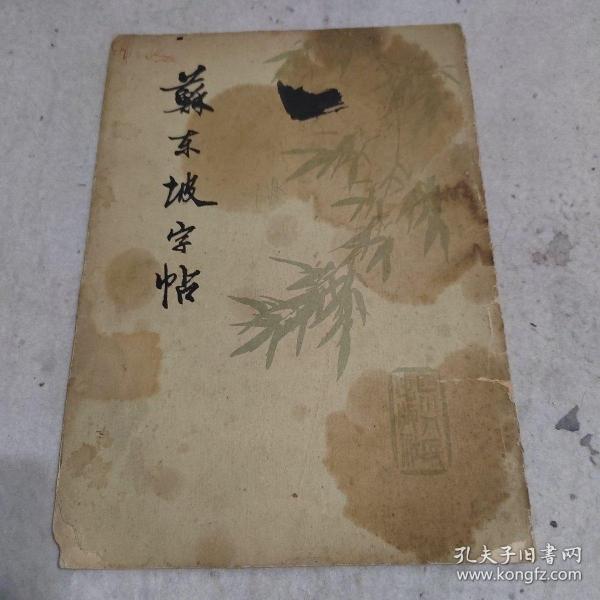 蘇东坡字帖
孔夫子旧書网
www.kongfz.com